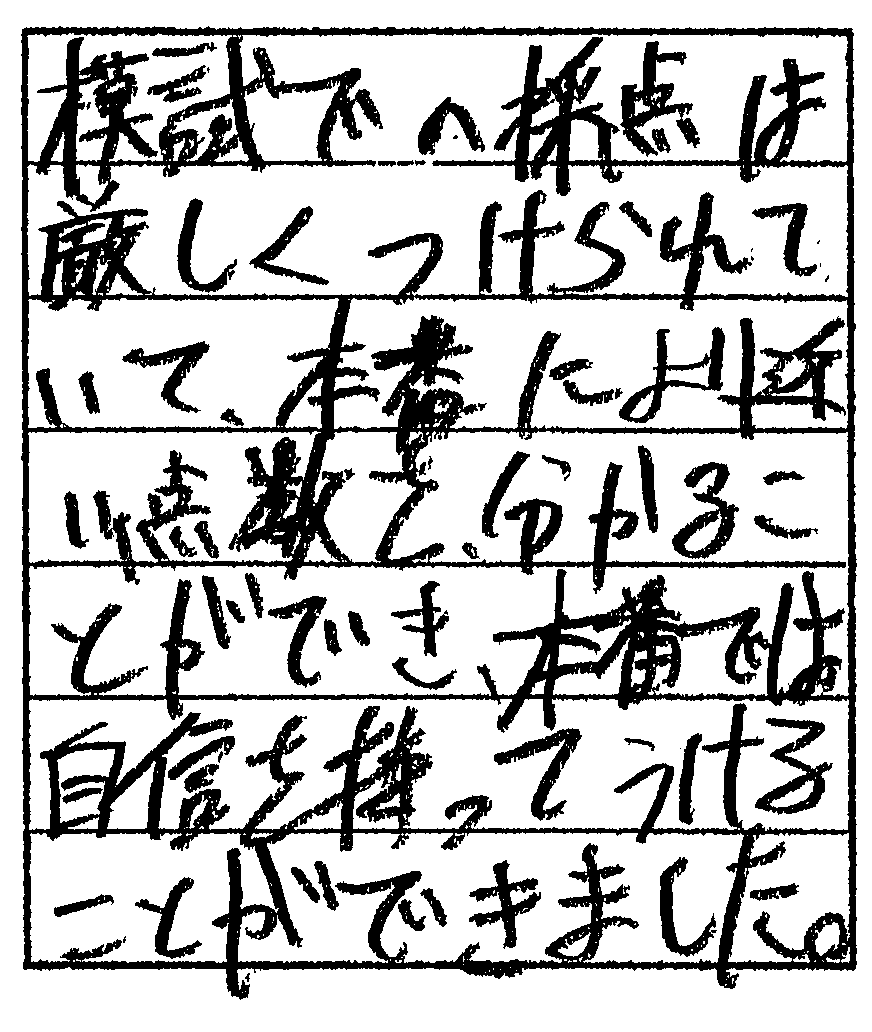 模試での採点は
厳しくつけられて
いて、本番により近
い点数を、分かるこ
とができ、本番では
自信を持ってうける
ことができました。